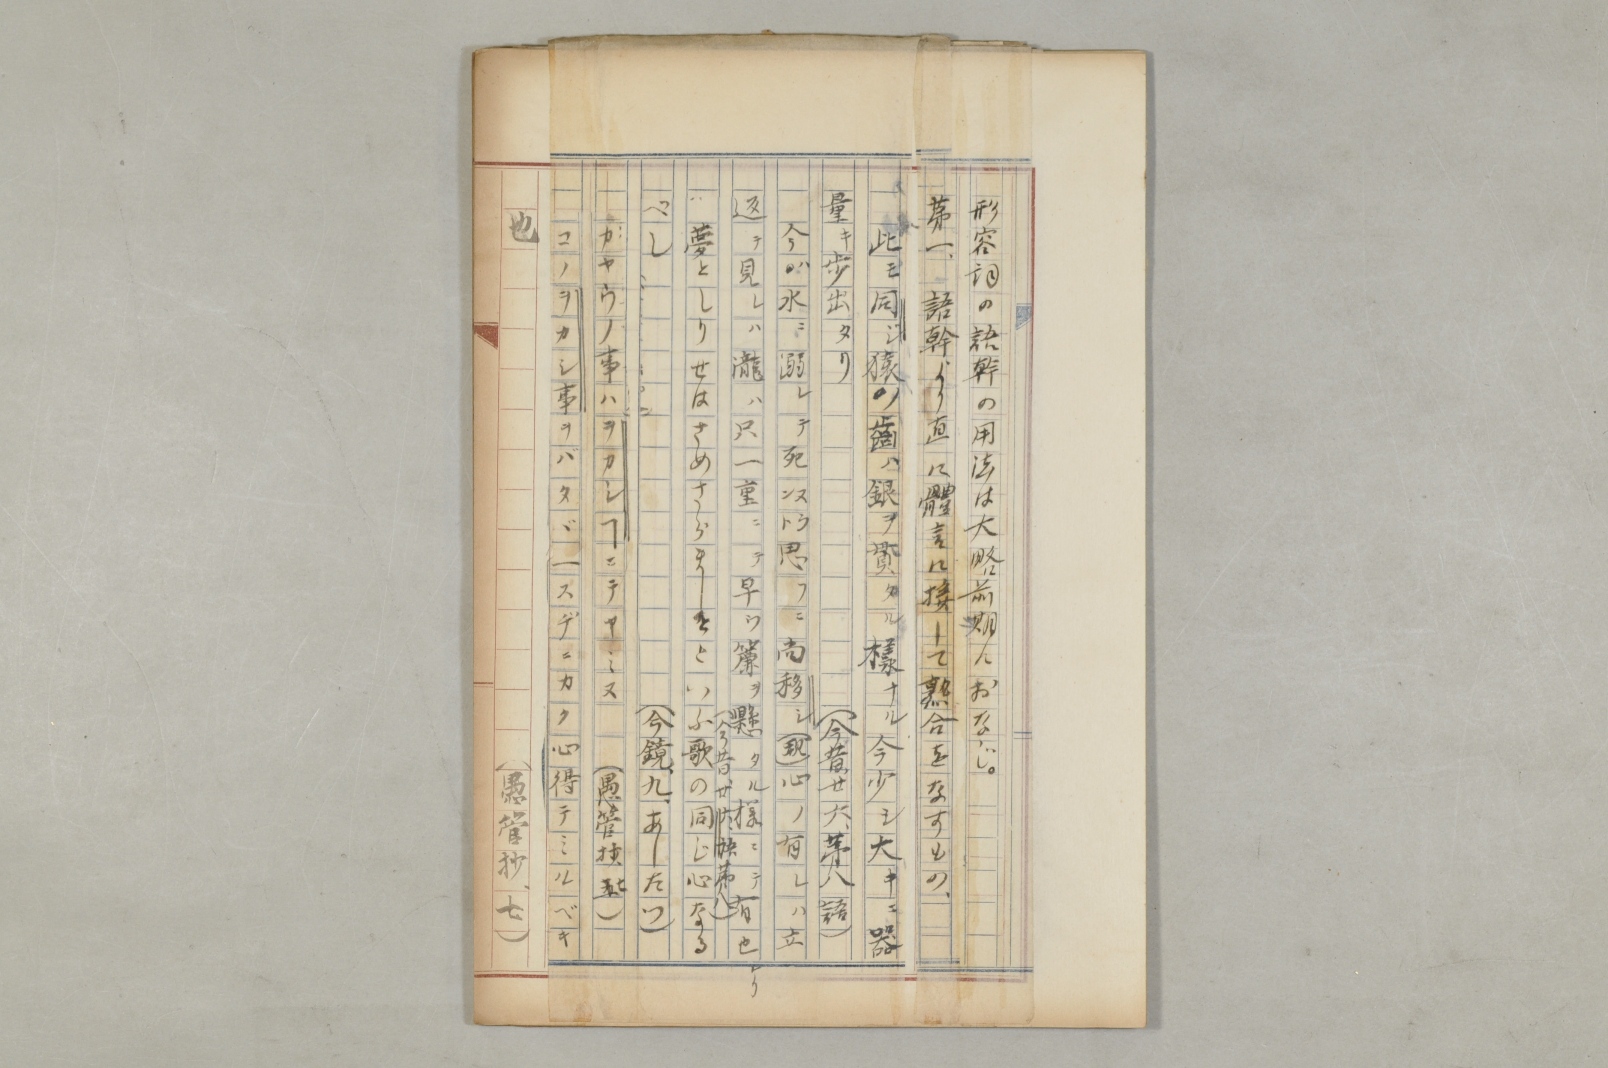 形容詞の語幹の用法は大略前期におなじ。
第一、語幹より直に體言に接して熟合をなすもの、
此モ同ジ猿ノ齒ハ銀ヲ貫タル樣ナル今少シ大キニ器
量キ歩出タリ
(今昔廿六、第八語)
今ハ水ニ溺レテ死ンズト思フニ尚移シ心ノ有レハ立
返テ見レハ瀧ハ只一重ニテ早ウ簾ヲ懸タル樣ニテ有也
夢としりせはさめさらましをといふ歌の同じ心なる
べし
(今鏡、九、あしたつ)
カヤウノ事ハヲカシフニテヤミヌ
(愚管抄、七)
コノヲカシ事ヲバタヾ一スヂニカク心得テミルベキ
也
(愚管抄、七)